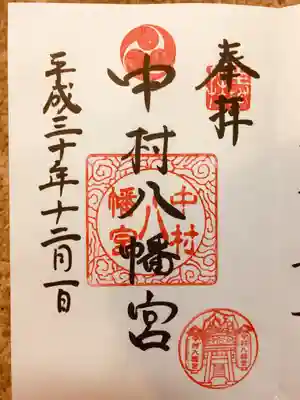 奉拝
中村八幡宮
平成三十年十二月一日
中村
八
幡宮
中村八幡宮